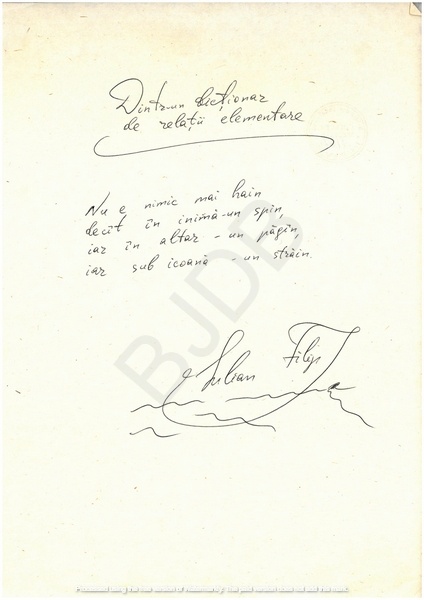 Dintr-un dicționar
de relații elementare
Nu e nimic mai hain
decît în inimă-un spin,
iar în altar - un păgîn,
iar sub icoană - un străin.
Iulian Filip
BJDB